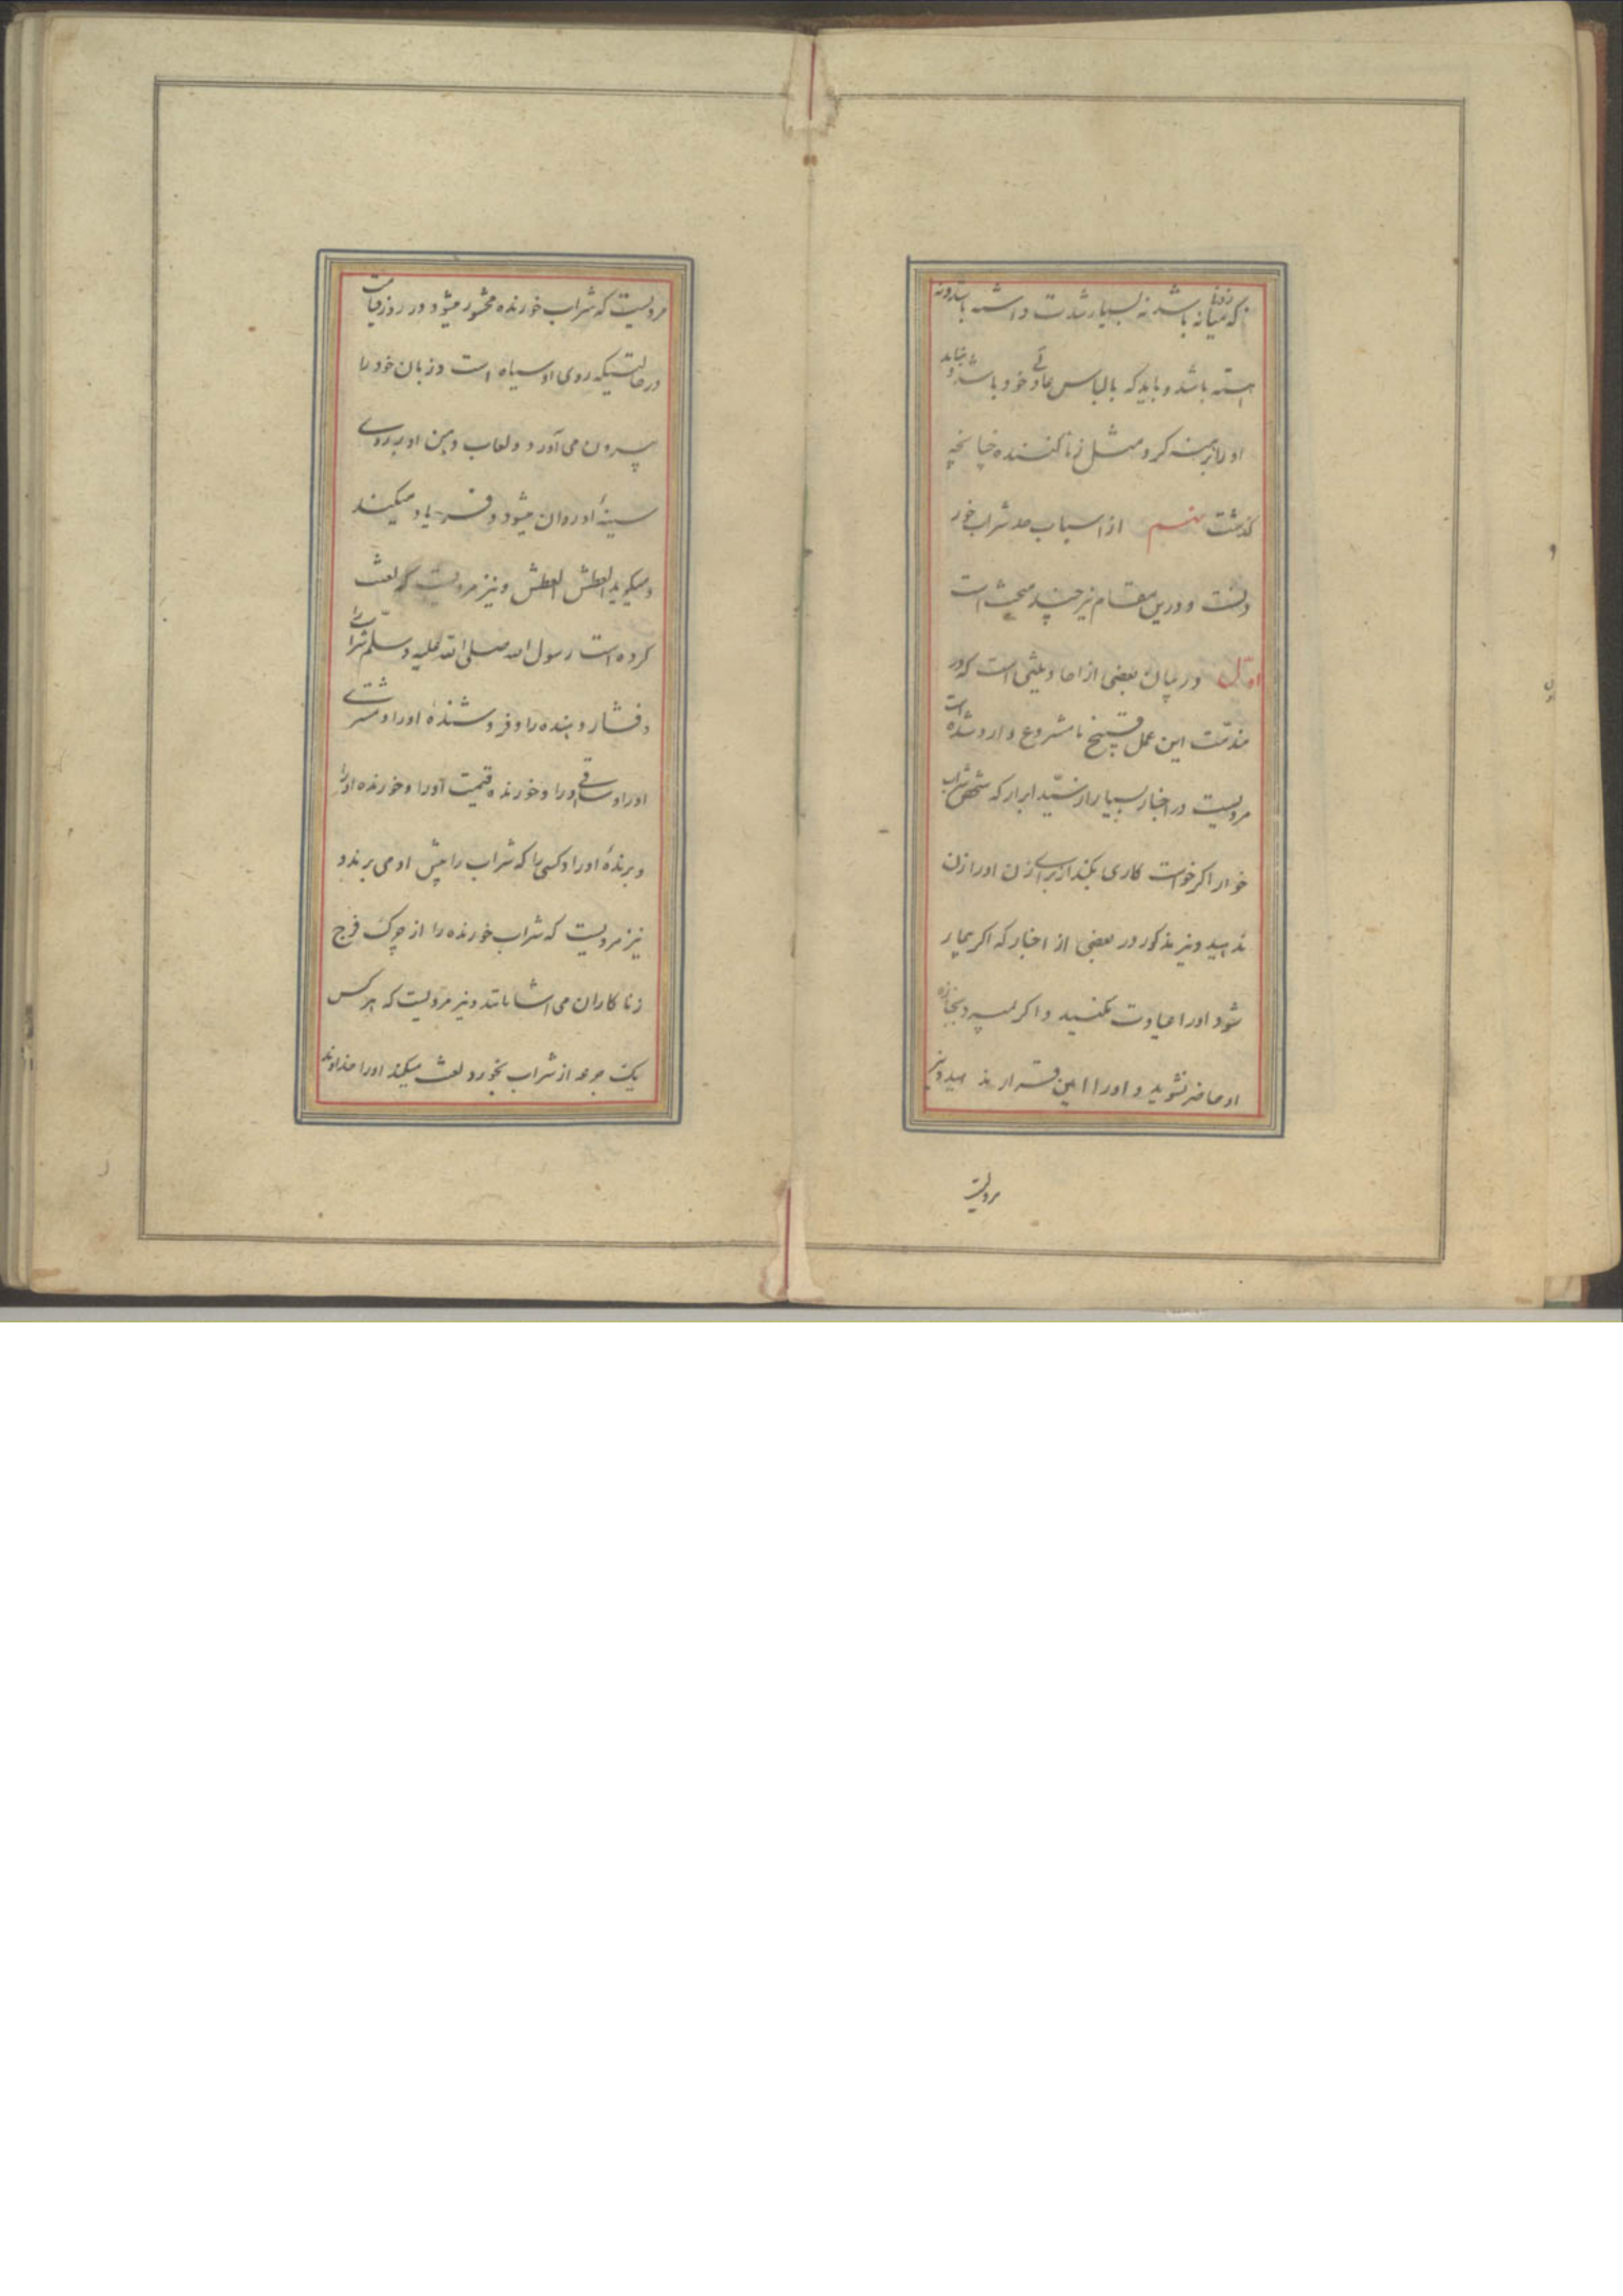 که میانه باشد نه بسیار شدت داشته باشد و نه
آهسته باشد و باید که با لباس عادی خود باشد و نباید
او را برهنه کرد مثل زنا کننده چنانچه
گذشت از اسباب حد شراب خور
دنست و درین مقام نیز چند مبحث است
اول در بیان بعضی از احادیثی است که در
مذمت این عمل قبیح نامشروع وارد شده است
مرویست در اخبار بسیار از سید ابرار که شخص شراب
خوار اگر خواست کاری بکند از برای زن او را زن
ندهید و نیز مذکور در بعضی از اخبار که اگر بیمار
شود او را عیادت نکنید و اگر بمیرد بجنازه
او حاضر نشوید و او را امین قرار ندهید و نیز
مرویست
مرویست که شراب خورنده محشور میشود در روز قیامت
در حالتیکه روی او سیاه است و زبان خود را
بیرون می آورد و لعاب دهن او بر روی
سینهٔ او روان میشود و فریاد میکند
و میگوید العطش العطش و نیز مرویست که لعنت
کرده است رسول الله صلی الله علیه و سلم شراب را
و فشار دهنده را و فروشندهٔ او را و مشتری
او را و ساقی او را و خورنده قیمت او را و خورنده او را
و برندهٔ او را و کسی را که شراب را پیش او می برند و
نیز مرویست که شراب خورنده را از چرک فرج
زنا کاران می آشامانند و نیز مرویست که هر کس
یک جرعه از شراب بخورد لعنت میکند او را خداوند